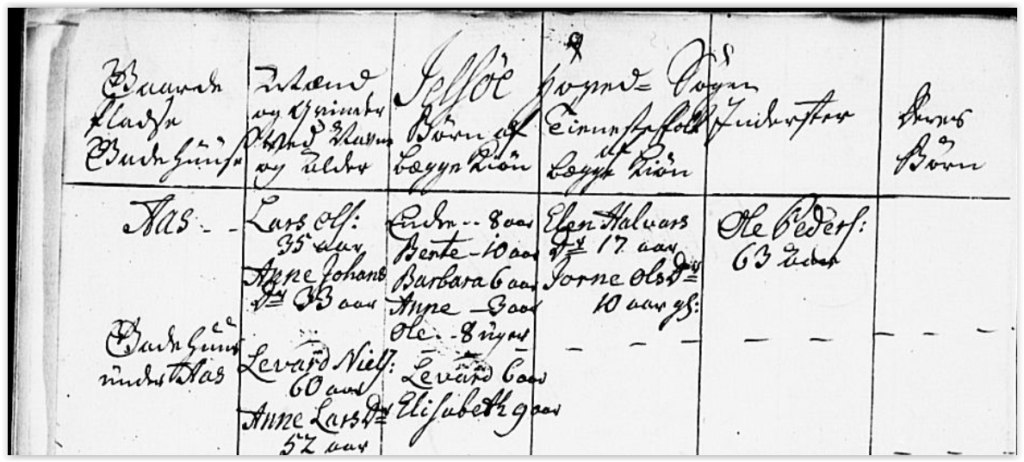 Jelsøe Hoved= Sogn
Gaarde
Pladse
Badehuuse
Mænd
og Qvinder
Ved Navne
og Alder
Børn af
begge Kiøn
Tienestefolk
af
begge Kiøn
Inderster
Deres
Børn
Aas - -
Lars Ols:
35 aar
Anne Johans
Dr 33 aar
Endre - - 8 aar
Bente - 10 aar
Barbara 6 aar
Anne - 3 aar
Ole - - 8 uger
Elen Halvars
Dr 17 aar
Jorne Ols Dr
10 aar gl:
Ole Peders:
63 aar
Badehuus
under Aas
Levard Niels:
60 aar
Anne Lars Dr
52 aar
Levard 6 aar
Elisabeth 9 aar